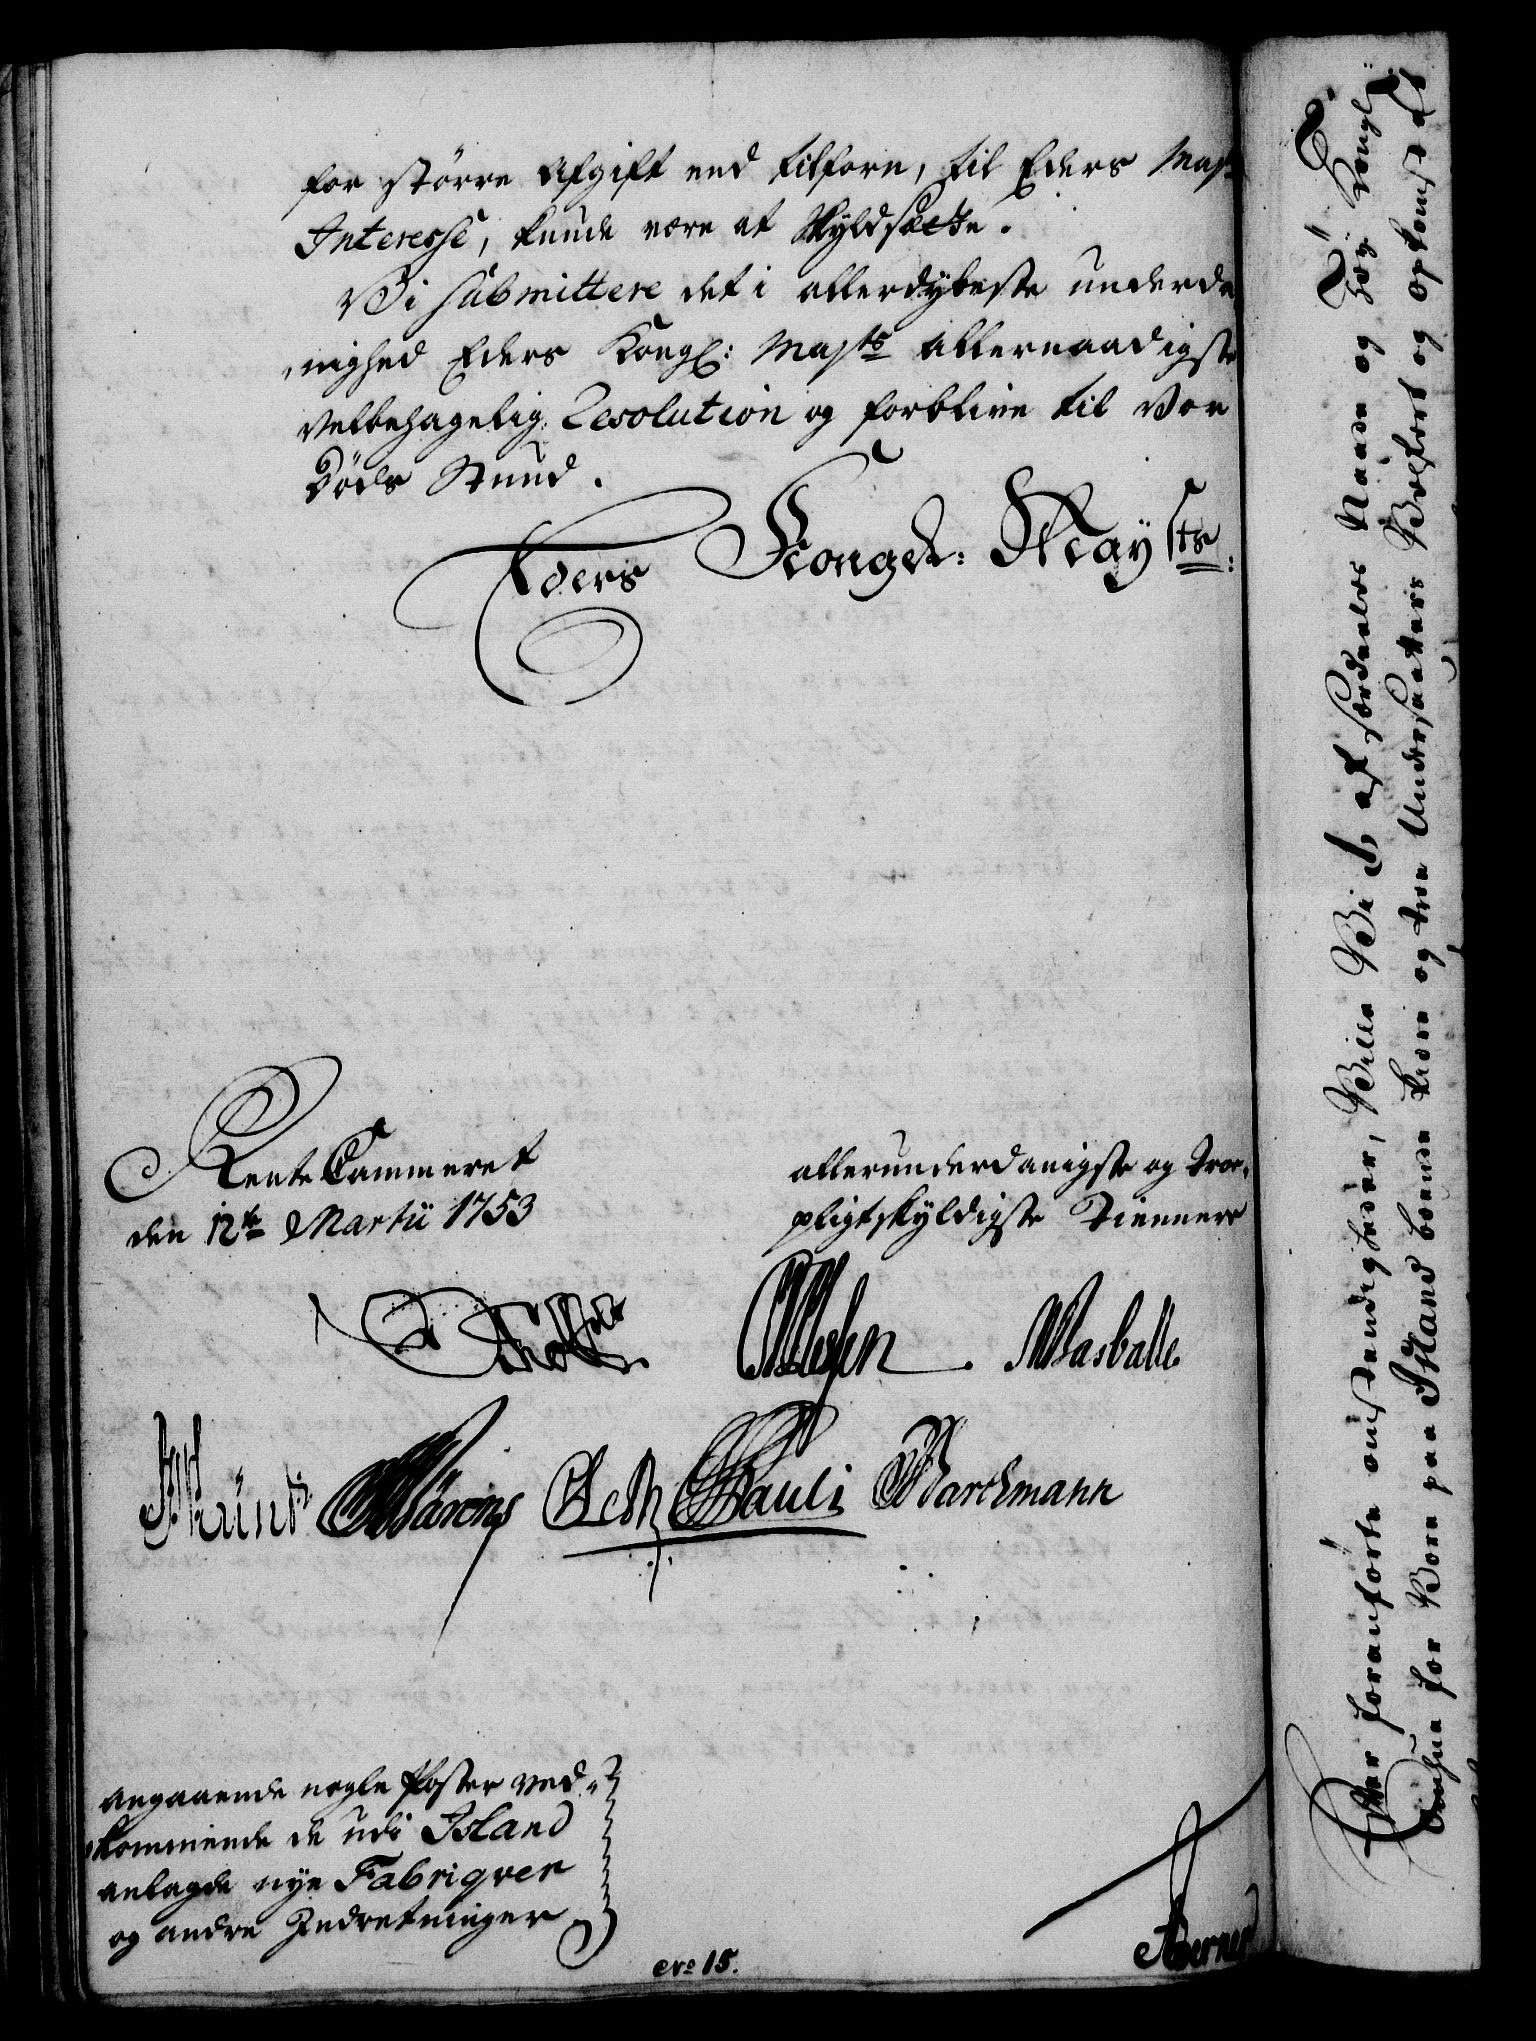 for større Afgift end tilforn, til Eders Maj
Interesse, kunde være at Skyldsætte.
Vi submittere det i allerdybeste underda
nighed Eders Kongl: Majts allernaadigste
velbehagelig Resolution og forblive til Vor
Døds Stund.
Eders Kongel: Mayts:
Rente Cammeret
den 12te Martii 1753
allerunderdanigste og troe-
pligtskyldigste Tienere
Holst
Masballe
Pauli Barchmann
angaaende nogle Poster ved-
kommende de udi Island
anlagde nye Fabriqver
og andre Indretninger
No 15.
Berner
Efter foranførte omstendigheder, Ville Vi af særdeeles Naade og høy Kongl:
Omhue for Vore paa Island boende kiere og troe Undersaatters Velfært og opkomst